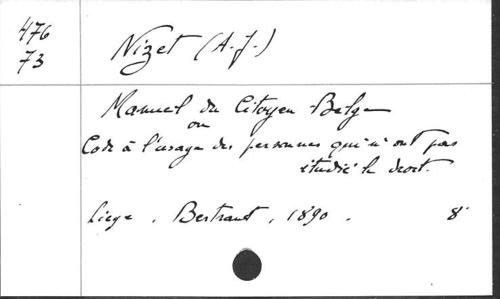 476
73
Nizet (A.-J.)
Manuel du Citoyen Belge
ou
Code à l'usage des personnes qui n'ont pas
étudié le droit.
Liège, Bertrand, 1890. 8°